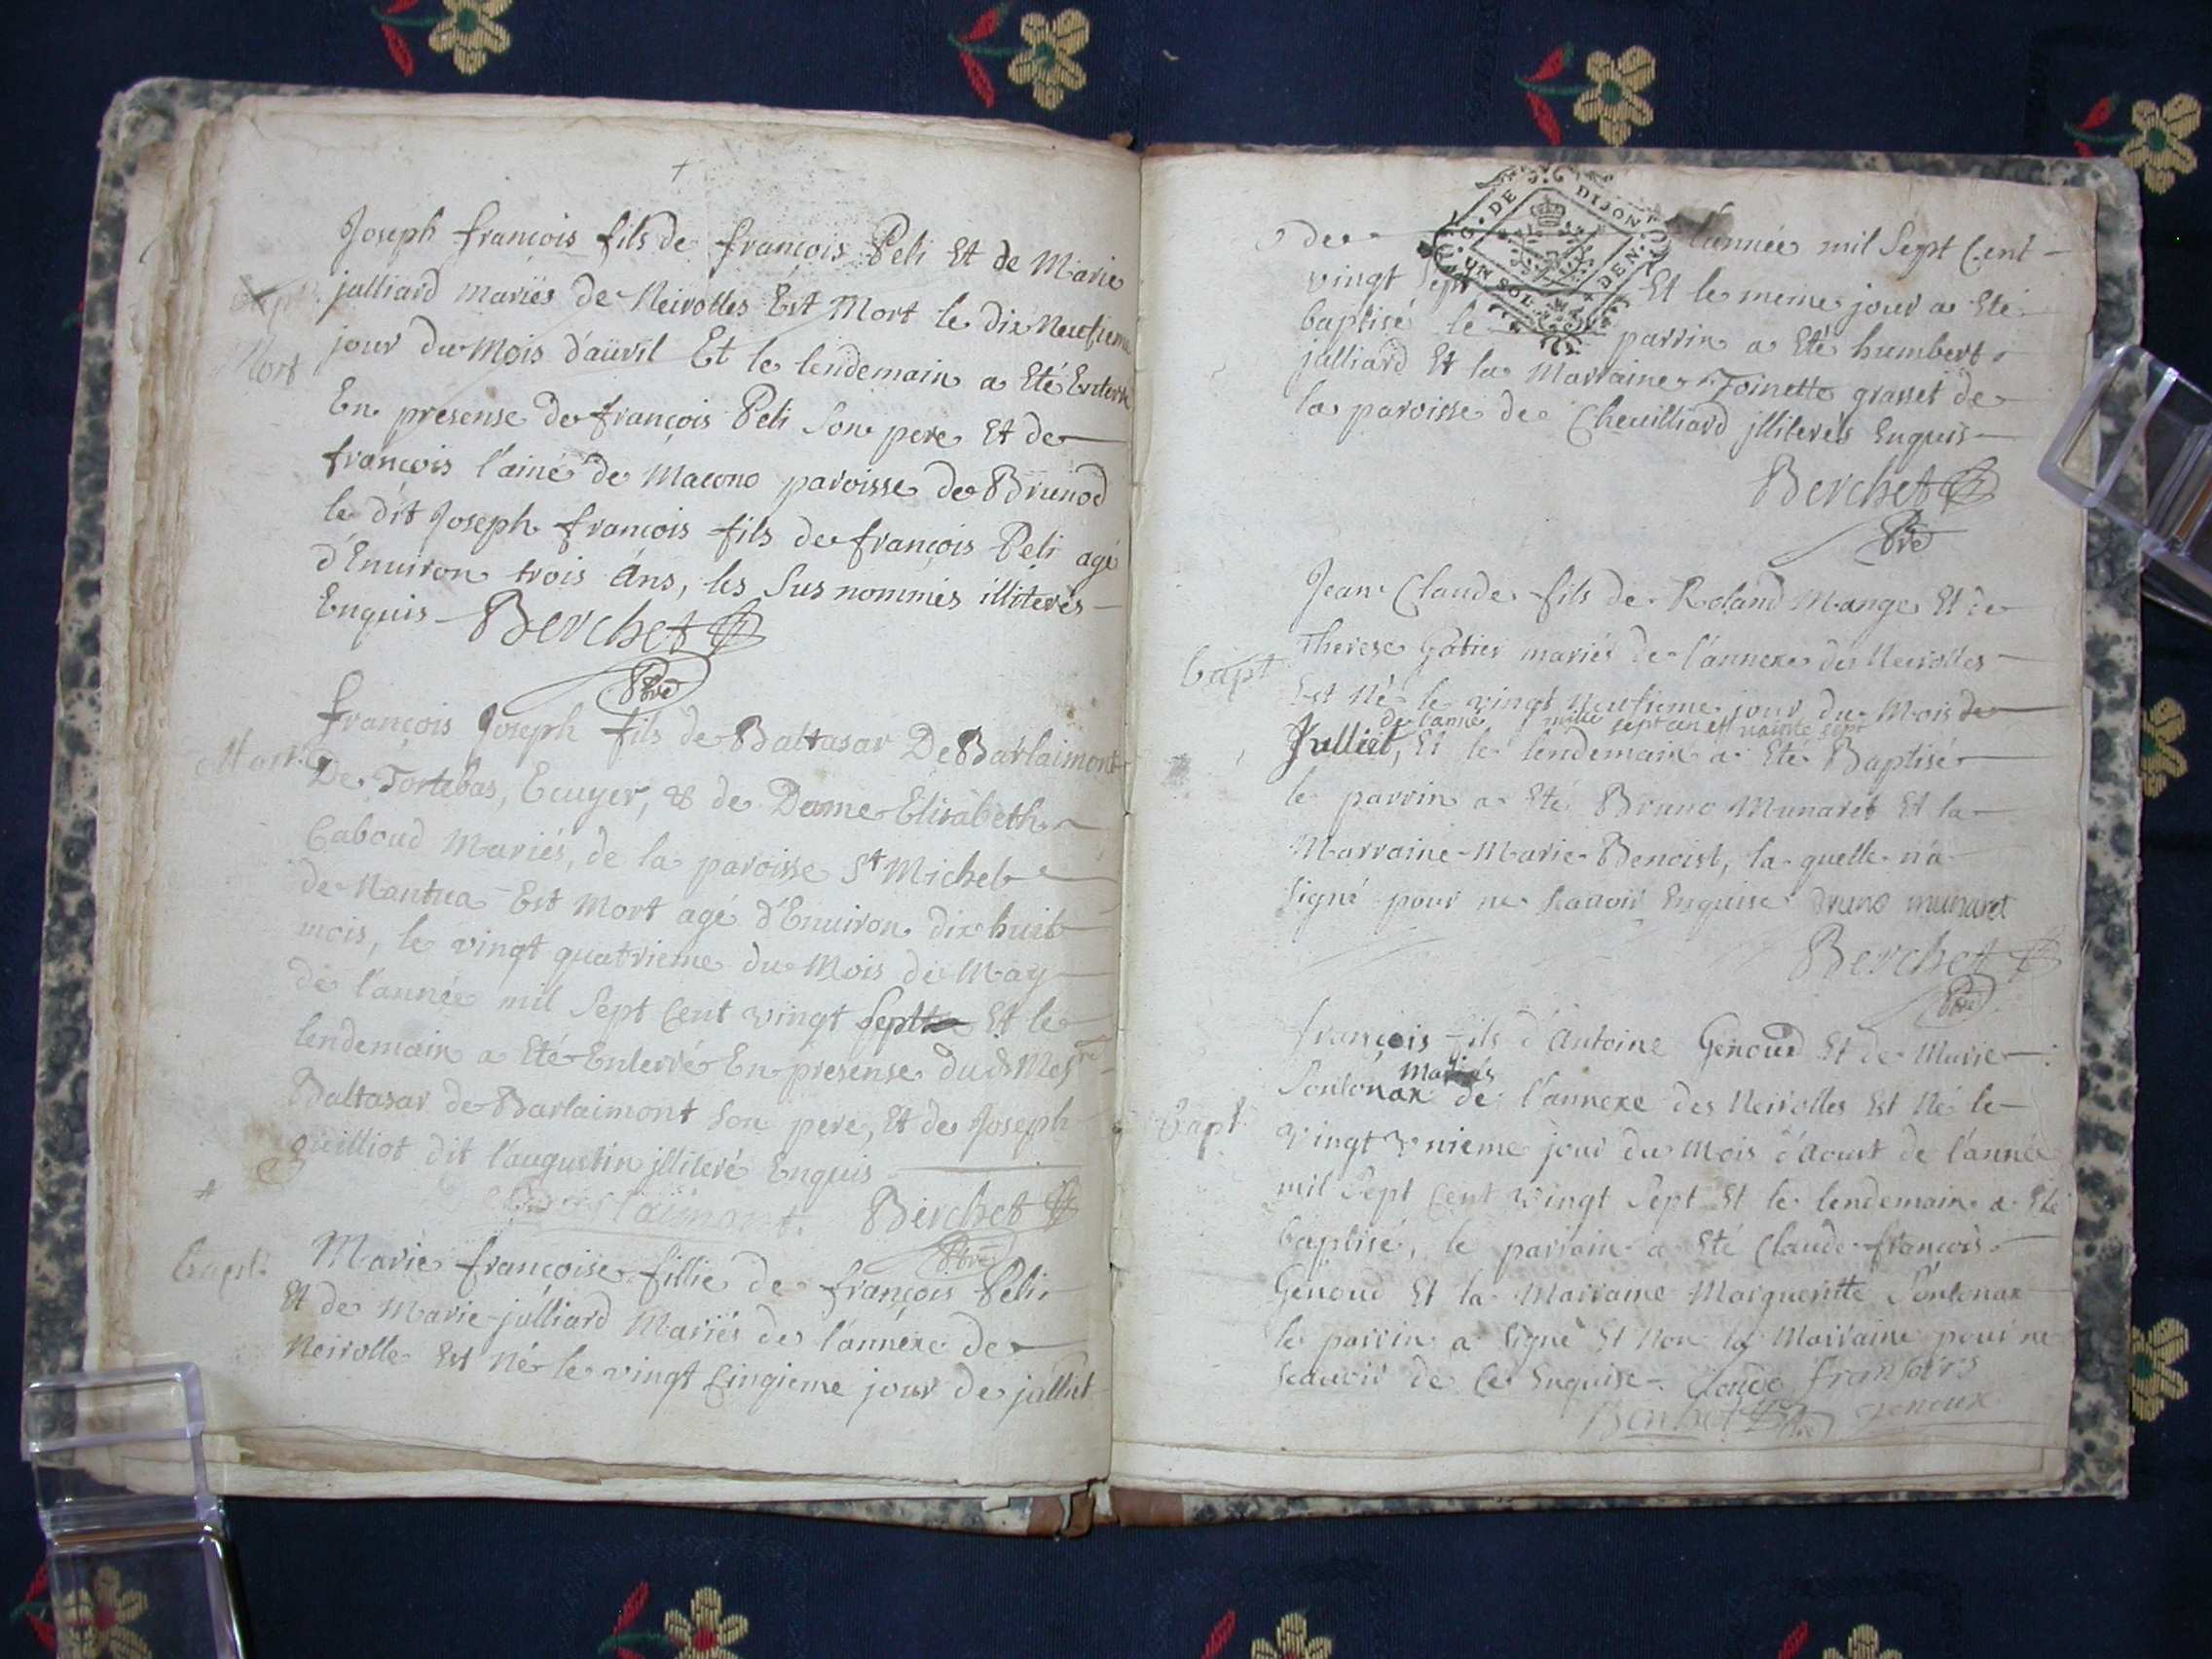 Joseph françois fils de françois Peli Et de Marie
julliard mariés de Neirolles Est Mort le dix Neufieme
Mort
jour du Mois d'auril Et le lendemain a Eté Enterré
En presense de françois Peli Son pere Et de
françois l'ainé de Macono paroisse de Brunod
le dit Joseph françois fils de françois Peli agé
d'Enuiron trois Ans, les Sus nommés illiterés
Enquis Berchet
Pbre
françois Joseph fils de Baltasar De Barlaimont
Mort
De Tortebas, Ecuyer, & de Dame Elisabeth
Caboud Mariés, de la paroisse St Michel
de Nantua Est Mort agé d'Enuiron dix huit
mois, le vingt quatrieme du Mois de May
de l'année mil Sept Cent vingt sept Et le
lendemain a Eté Enterré En presense dud Mesre
Baltasar de Barlaimont Son pere, Et de Joseph
guilliot dit l'augustin jlliteré Enquis
Berchet
Pbre
Bapt.
Marie françoise fillie de françois Peli
Et de Marie julliard Mariés de l'annexe de
Neirolle Est Né le vingt Cinqieme jour de julliet
G. DE DIJON
UN SOL
DEN
de l'année mil Sept Cent
vingt Sept Et le meme jour a Eté
baptisé le parrin a Eté humbert
julliard Et la Marraine Toinette grasset de
la paroisse de Cheuilliard jlliterés Enquis
Berchet
Pbre
Jean Claude fils de Roland Mange Et de
Therese Gatier mariés de l'annexe des Neirolles
Bapt
Est Né le vingt Neufieme jour du Mois de
de l'anne mille sept
Julliet, Et le lendemain a Eté Baptisé
le parrin a Eté Bruno Munaret Et la
Marraine Marie Benoist, la quelle n'a
Signé pour ne Scauoir Enquise bruno munaret
Berchet
Pbre
françois fils d'Antoine Genoud Et de Marie
Mariés
Sonlonax de l'annexe des Neirolles Est Né le
Bapt
vingt vnieme jour du Mois d'Aoust de l'année
mil Sept Cent vingt Sept Et le lendemain a Eté
baptisé, le parrain a Eté Claude françois
Genoud Et la Marraine Margueritte Sonlonax
le parrin a Signé Et Non la Marraine pour ne
Scauoir de Ce Enquise Claude fransois
Berchet Pbre genoux